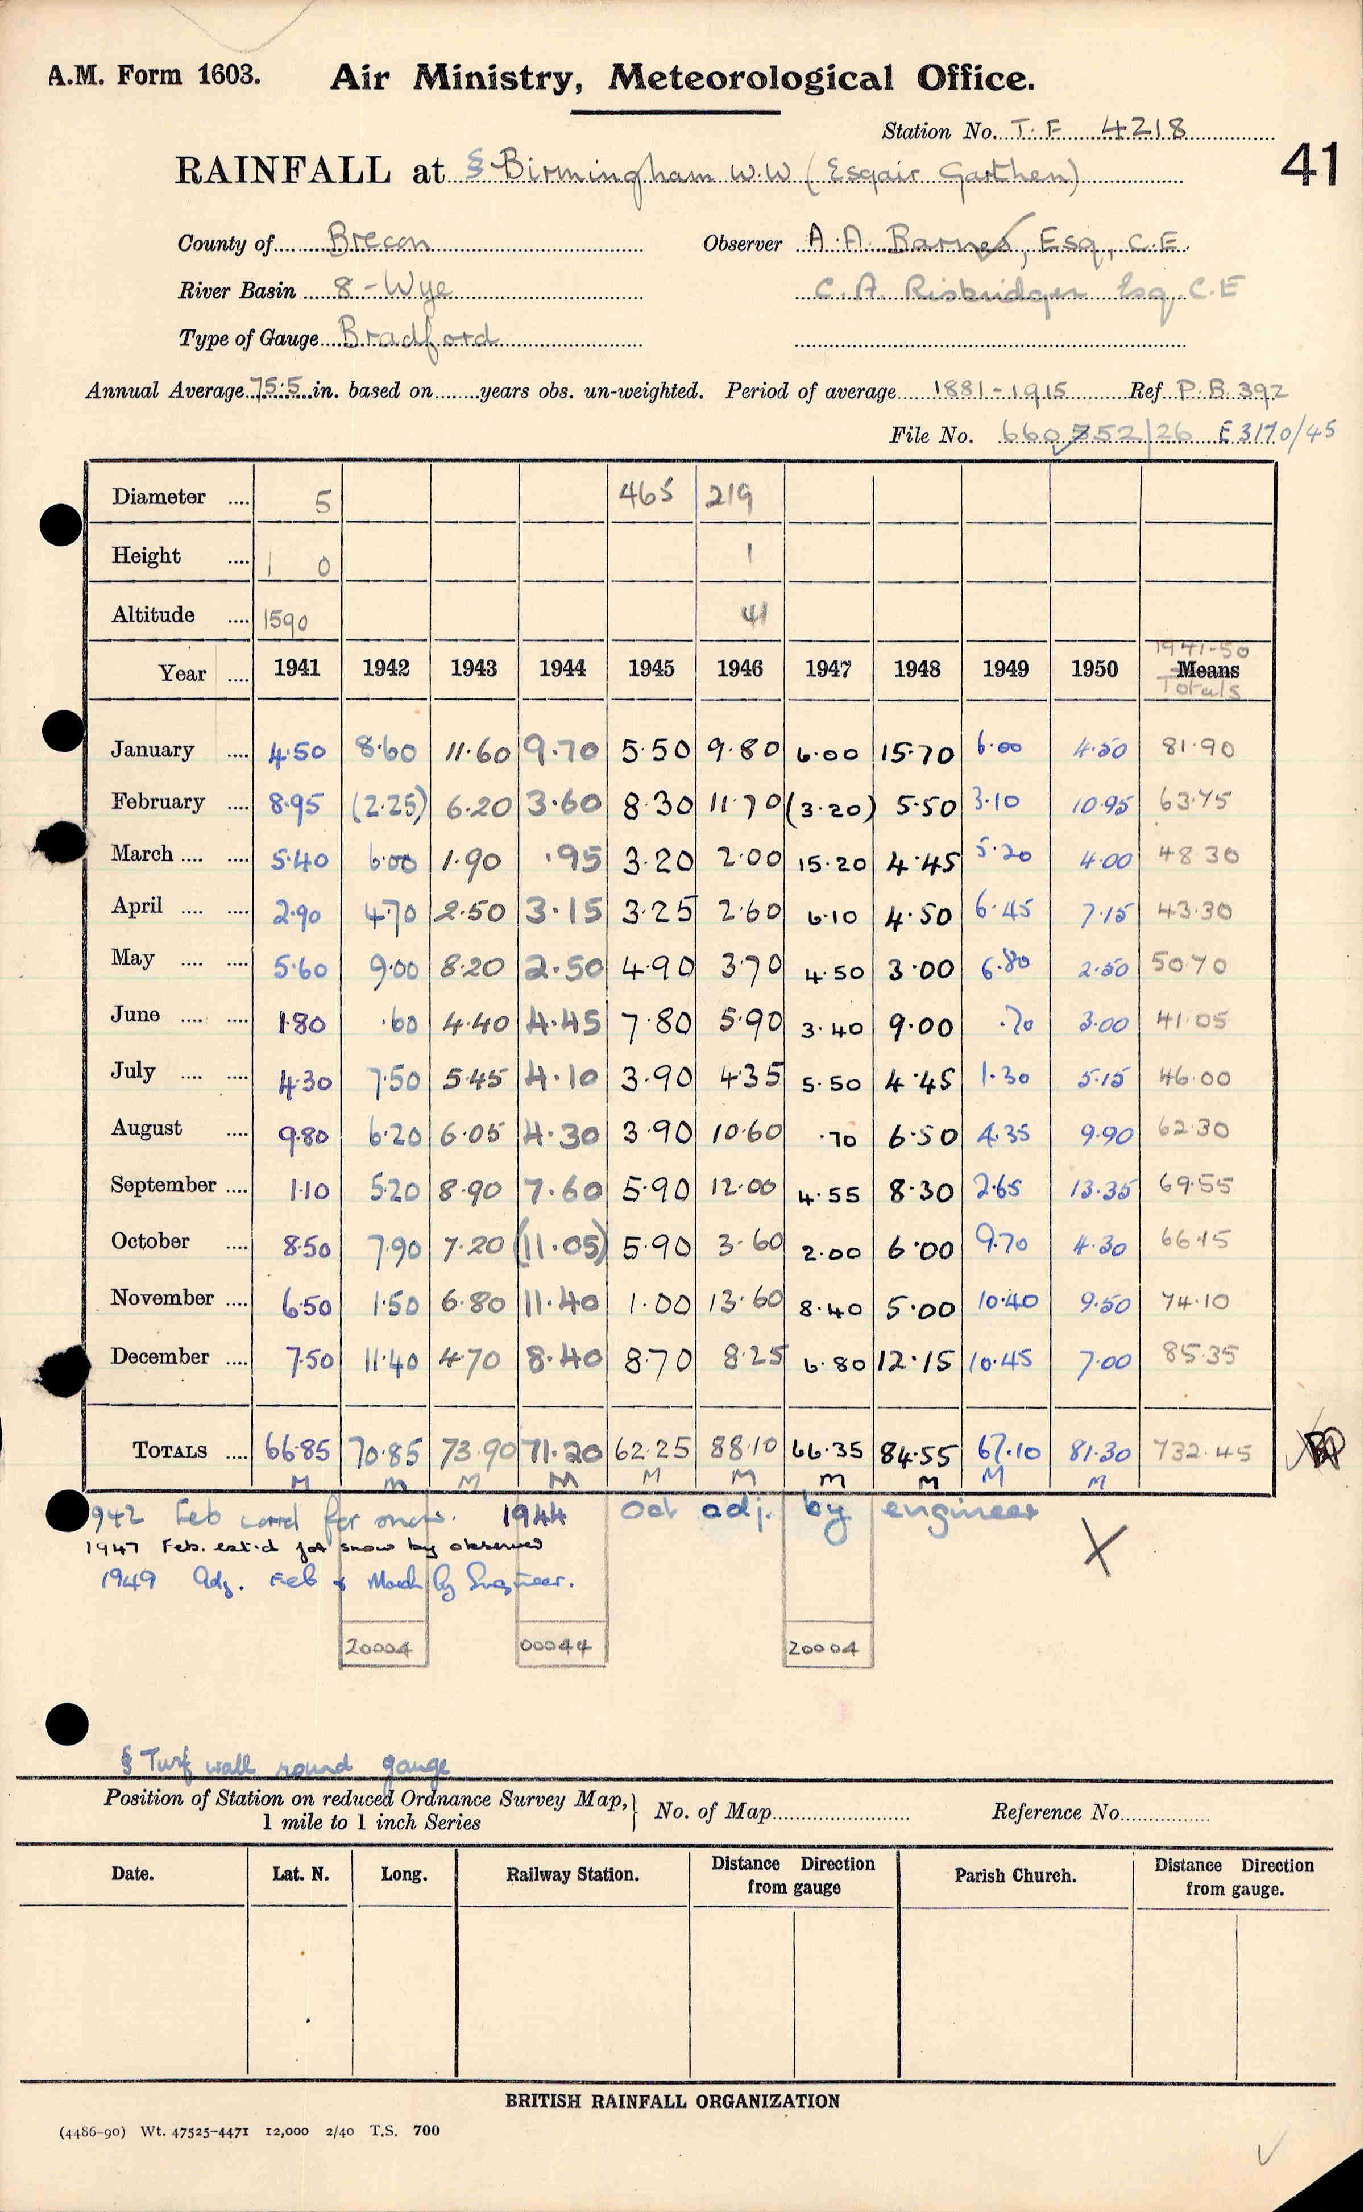 A.M. Form 1603. Air Ministry, Meteorological Office.
Station No. T.F 4218
41
RAINFALL at § Birmingham W.W (Esgair Garthen)
County of Brecon Observer A.A. Barnes, Esq, C.E.
River Basin 8-Wye C.A. Risbridger Esq C.E
Type of Gauge Bradford
Annual Average 75.5 in. based on years obs. un-weighted. Period of average 1881-1915 Ref P.B. 392
File No. 660552/26 E3170/45
Diameter .... 5 465 219
Height .... 1 0 1
Altitude .... 1590 41
Year .... 1941 1942 1943 1944 1945 1946 1947 1948 1949 1950 1941-50 Means Totals
January .... 4.50 8.60 11.60 9.70 5.50 9.80 6.00 15.70 6.00 4.50 81.90
February .... 8.95 (2.25) 6.20 3.60 8.30 11.70 (3.20) 5.50 3.10 10.95 63.75
March .... .... 5.40 6.00 1.90 .95 3.20 2.00 15.20 4.45 5.20 4.00 48.30
April .... .... 2.90 4.70 2.50 3.15 3.25 2.60 6.10 4.50 6.45 7.15 43.30
May .... .... 5.60 9.00 8.20 2.50 4.90 3.70 4.50 3.00 6.80 2.50 50.70
June .... .... 1.80 .60 4.40 4.45 7.80 5.90 3.40 9.00 .70 3.00 41.05
July .... .... 4.30 7.50 5.45 4.10 3.90 4.35 5.50 4.45 1.30 5.15 46.00
August .... 9.80 6.20 6.05 4.30 3.90 10.60 .70 6.50 4.35 9.90 62.30
September .... 1.10 5.20 8.90 7.60 5.90 12.00 4.55 8.30 2.65 13.35 69.55
October .... 8.50 7.90 7.20 (11.05) 5.90 3.60 2.00 6.00 9.70 4.30 66.15
November .... 6.50 1.50 6.80 11.40 1.00 13.60 8.40 5.00 10.40 9.50 74.10
December .... 7.50 11.40 4.70 8.40 8.70 8.25 6.80 12.15 10.45 7.00 85.35
TOTALS .... 66.85 70.85 73.90 71.20 62.25 88.10 66.35 84.55 67.10 81.30 732.45
M M M M M M M M M M
1942 Feb corrd for snow. 1944 Oct adj. by engineer
1947 Feb. est.d for snow by observer
1949 Adj. Feb & March by Engineer.
X
20004 00044 20004
§ Turf wall round gauge
Position of Station on reduced Ordnance Survey Map, } No. of Map Reference No
1 mile to 1 inch Series
Date. Lat. N. Long. Railway Station. Distance Direction from gauge Parish Church. Distance Direction from gauge.
BRITISH RAINFALL ORGANIZATION
(4486-90) Wt. 47525-4471 12,000 2/40 T.S. 700